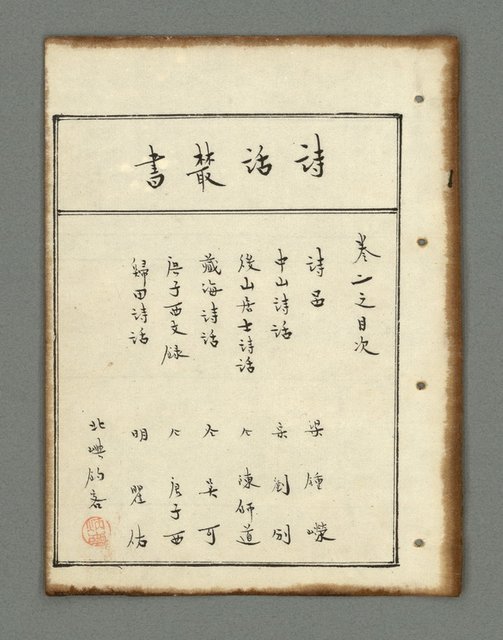 詩話叢書
卷二之目次
詩品 梁 鍾嶸
中山詩話 宋 劉攽
後山居士詩話 仝 陳師道
藏海詩話 仝 吳可
唐子西文錄 仝 唐子西
歸田詩話 明 瞿佑
北嶼釣客